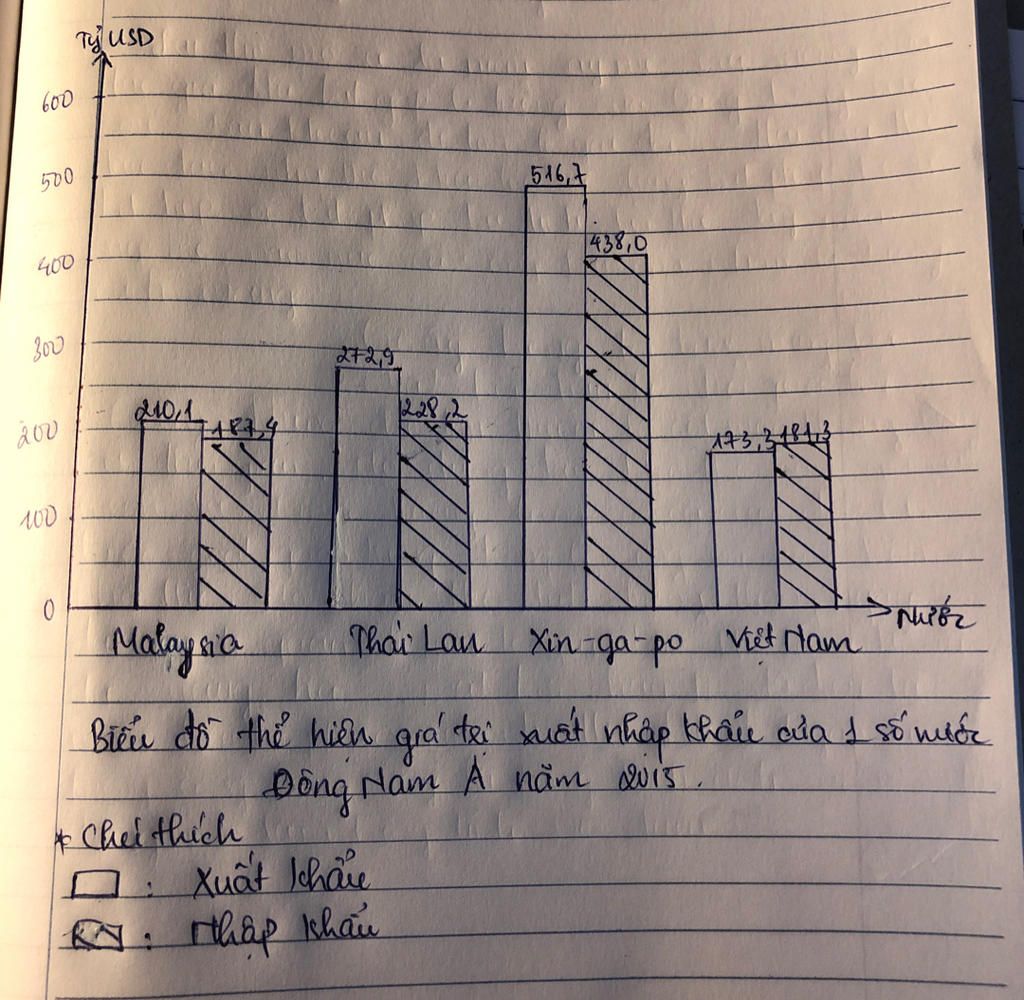 Tỷ USD
600
500
400
300
200
100
0
210,1
187,4
272,9
228,2
516,7
438,0
173,3
181,3
Malaysia
Thái Lan
Xin-ga-po
Việt Nam
Nước
Biểu đồ thể hiện giá trị xuất nhập khẩu của 1 số nước
Đông Nam Á năm 2015.
* Chú thích
: Xuất khẩu
: Nhập khẩu